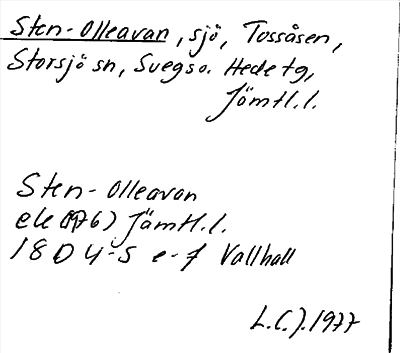 Sten-Olleavan, sjö, Tossåsen,
Storsjö sn, Svegs o. Hede tg,
Jämtl.l.
Sten-Olleavan
ek (1976) Jämtl.l.
18 D 4-5 e-f Vallhall
L.C.J. 1977